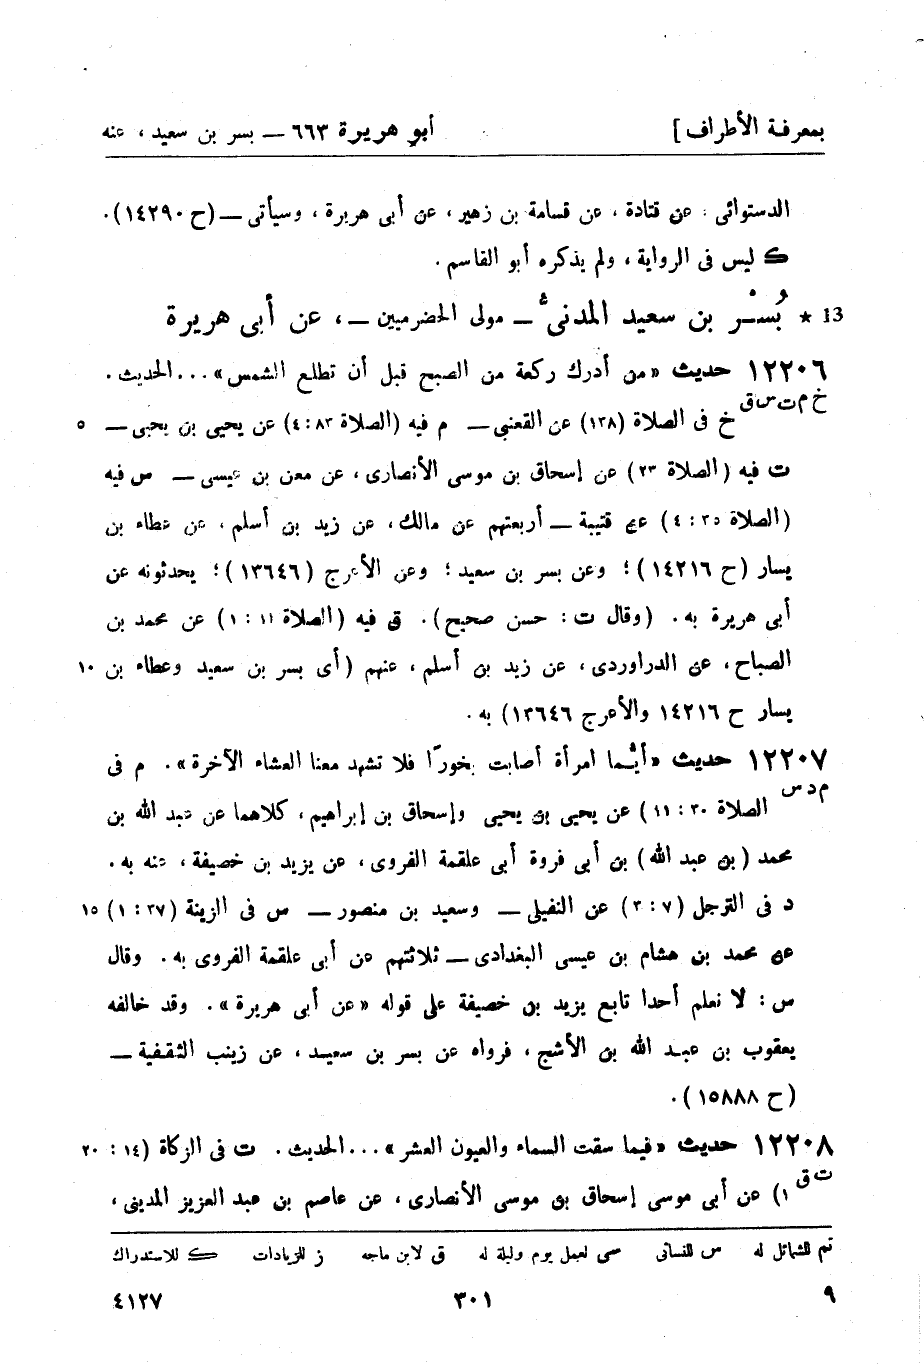 بمعرفة الأطراف] أبو هريرة ٦٦٣ — بسر بن سعيد ، عنه
الدستوائى ، عن قتادة ، عن قسامة بن زهير ، عن أبى هريرة ، وسيأتى — (ح ١٤٢٩٠).
ك ليس فى الرواية ، ولم يذكره أبو القاسم .
13 ★ بُسْر بن سعيد المدنى — مولى الحضرميين —، عن أبى هريرة
١٢٢٠٦ حديث «من أدرك ركعة من الصبح قبل أن تطلع الشمس» ... الحديث .
خ م ت س ق
خ فى الصلاة (١٣٨) عن القعنبى — م فيه (الصلاة ٨٣ : ٤) عن يحيى بن يحيى — ٥
ت فيه (الصلاة ٢٣) عن إسحاق بن موسى الأنصارى ، عن معن بن عيسى — س فيه
(الصلاة ٢٥ : ٤) عن قتيبة — أربعتهم عن مالك ، عن زيد بن أسلم ، عن عطاء بن
يسار (ح ١٤٢١٦)؛ وعن بسر بن سعيد ؛ وعن الأعرج (١٣٦٤٦)؛ يحدثونه عن
أبى هريرة به . (وقال ت : حسن صحيح). ق فيه (الصلاة ١١ : ١) عن محمد بن
الصباح ، عن الدراوردى ، عن زيد بن أسلم ، عنهم (أى بسر بن سعيد وعطاء بن ١٠
يسار ح ١٤٢١٦ والأعرج ١٣٦٤٦) به .
١٢٢٠٧ حديث «أيُّما امرأة أصابت بخورًا فلا تشهد معنا العشاء الآخرة» . م فى
م د س
الصلاة ٣٠ : ١١) عن يحيى بن يحيى وإسحاق بن إبراهيم ، كلاهما عن عبد الله بن
محمد (بن عبد الله) بن أبى فروة أبى علقمة الفروى ، عن يزيد بن خصيفة ، عنه به .
د فى الترجل (٧ : ٣) عن النفيلى — وسعيد بن منصور — س فى الزينة (٣٧ : ١) ١٥
عن محمد بن هشام بن عيسى البغدادى — ثلاثتهم عن أبى علقمة الفروى به . وقال
س : لا نعلم أحدا تابع يزيد بن خصيفة على قوله «عن أبى هريرة» . وقد خالفه
يعقوب بن عبد الله بن الأشج ، فرواه عن بسر بن سعيد ، عن زينب الثقفية —
(ح ١٥٨٨٨).
١٢٢٠٨ حديث «فيما سقت السماء والعيون العشر» ... الحديث . ت فى الزكاة (١٤ : ٢٠
ت ق
١) عن أبى موسى إسحاق بن موسى الأنصارى ، عن عاصم بن عبد العزيز المدينى ،
تم للشمائل له س للنسائى سى لعمل يوم وليلة له ق لابن ماجه ز للزيادات ك للاستدراك
٩ ٣٠١ ٤١٢٧